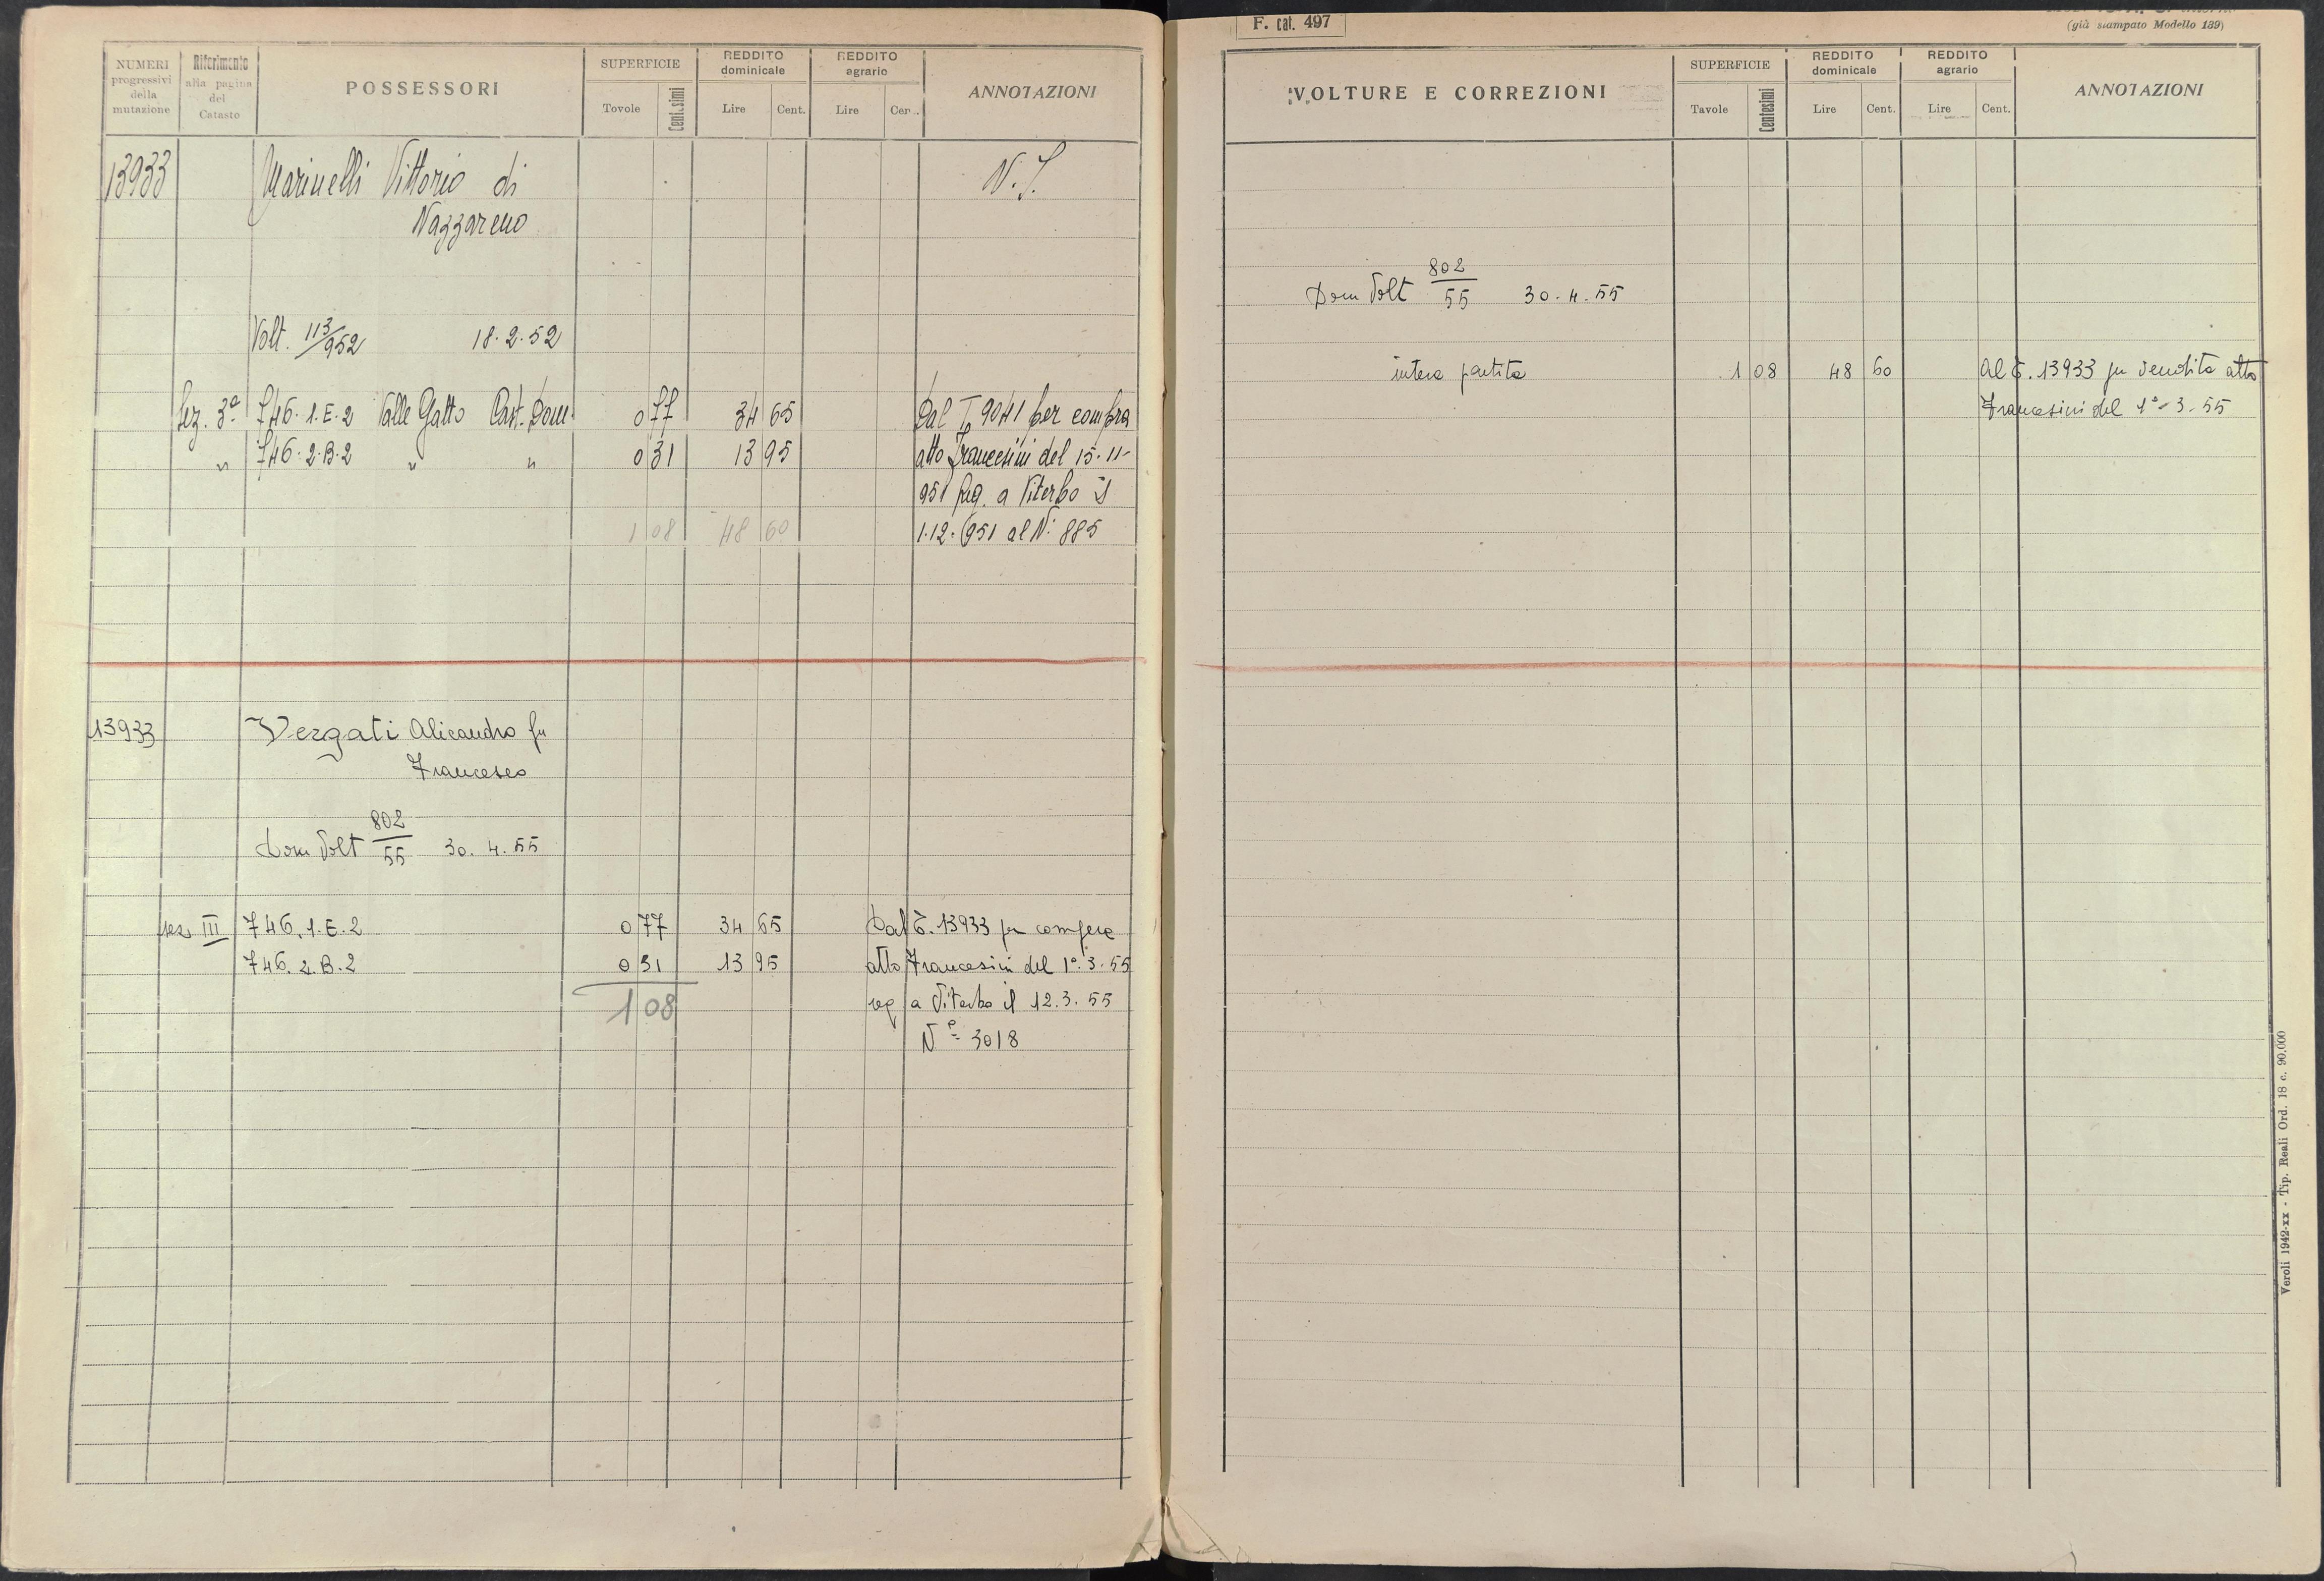 NUMERI progressivi della mutazione | Riferimento alla pagina del Catasto | POSSESSORI | SUPERFICIE Tavole Centesimi | REDDITO dominicale Lire Cent. | REDDITO agrario Lire Cen. | ANNOTAZIONI
13933 Marinelli Vittorio di N.I.
Nazzareno
Volt. 113/952 18.2.52
Sez. 3ª 746.1.E.2 Valle Gatto Cast. Dom. 0 77 34 65 Dal T. 9041 per compra
" 746.2.B.2 " " 0 31 13 95 atto Francesini del 15-11-
951 Reg. a Viterbo il
1 08 48 60 1.12.951 al N: 885
13933 Vergati Alicandro fu
Francesco
Dom Volt 802/55 30.4.55
sez III 746.1.E.2 0 77 34 65 Dal č. 13933 per compera
746.2.B.2 0 31 13 95 atto Francesini del 1°.3.55
1 08 reg a Viterbo il 12.3.55
N° 3018
F. cat. 497
(già stampato Modello 139)
VOLTURE E CORREZIONI | SUPERFICIE Tavole Centesimi | REDDITO dominicale Lire Cent. | REDDITO agrario Lire Cent. | ANNOTAZIONI
Dom Volt 802/55 30.4.55
intera partita 1 08 48 60 Al č. 13933 per vendita atto
Francesini del 1°-3.55
Veroli 1942-xx - Tip. Reali Ord. 18 c. 90.000